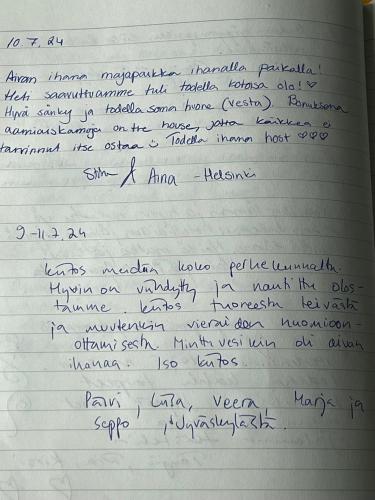 10.7.24
Aivan ihana majapaikka ihanalla paikalla!
Heti saavuttuamme tuli todella kotoisa olo! ♡
Hyvä sänky ja todella soma huone (Vesta). Bonuksena
aamiaiskamoja on the house, jotta kaikkea ei
tarvinnut itse ostaa :) Todella ihana host ♡♡♡
Aina - Helsinki
9-11.7.24
Kiitos meidän koko perhekunnalta.
Hyvin on viihdytty ja nautittu olos-
tamme. Kiitos tuoreesta leivästä
ja muutenkin vieraiden huomioon-
ottamisesta. Minttuvesikin oli aivan
ihanaa. Iso kiitos.
Päivi, Liisa, Veera Marja ja
Seppo, Jyväskylästä.